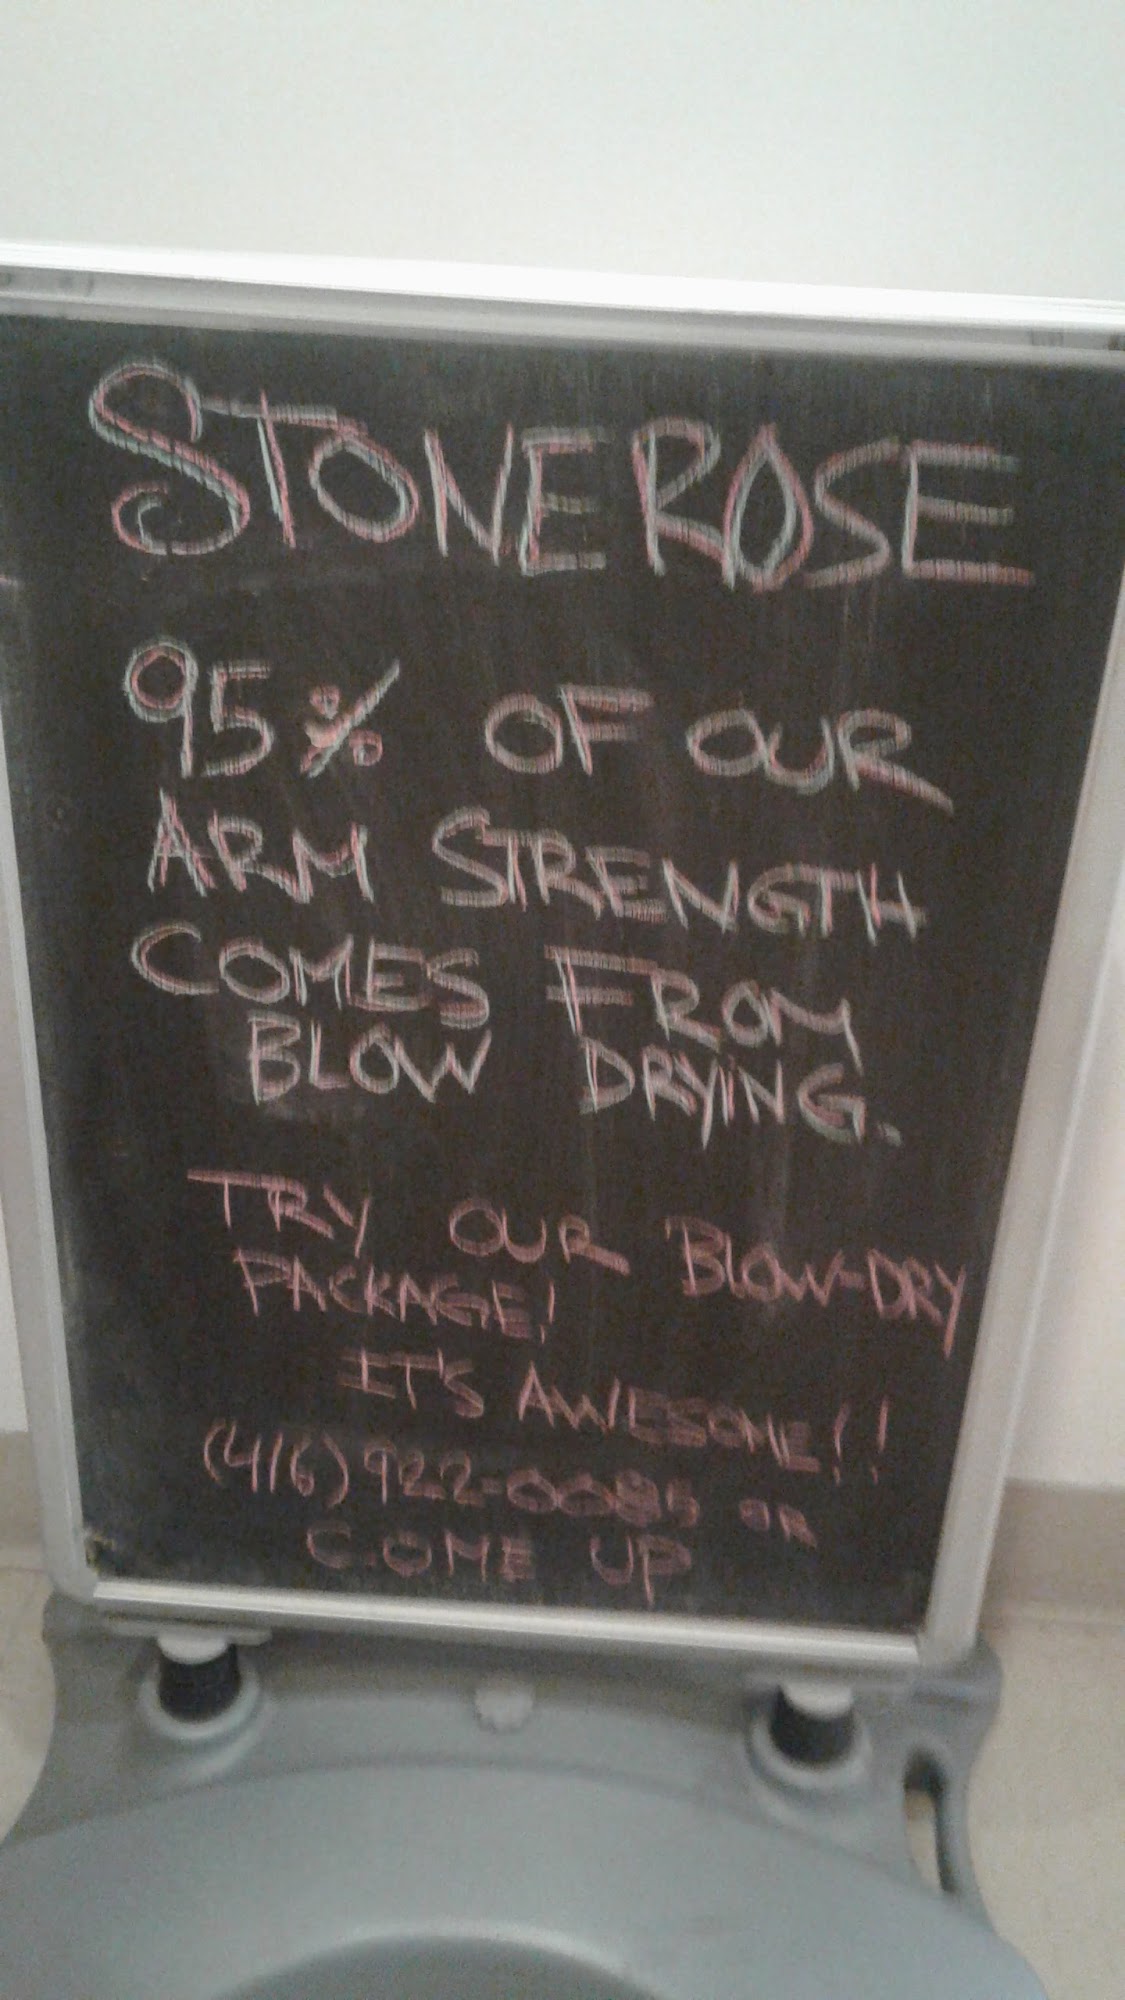 STONEROSE
95% OF OUR
ARM STRENGTH
COMES FROM
BLOW DRYING.
TRY OUR BLOW-DRY
PACKAGE!
IT'S AWESOME!!
(416) 922-0085 OR
COME UP